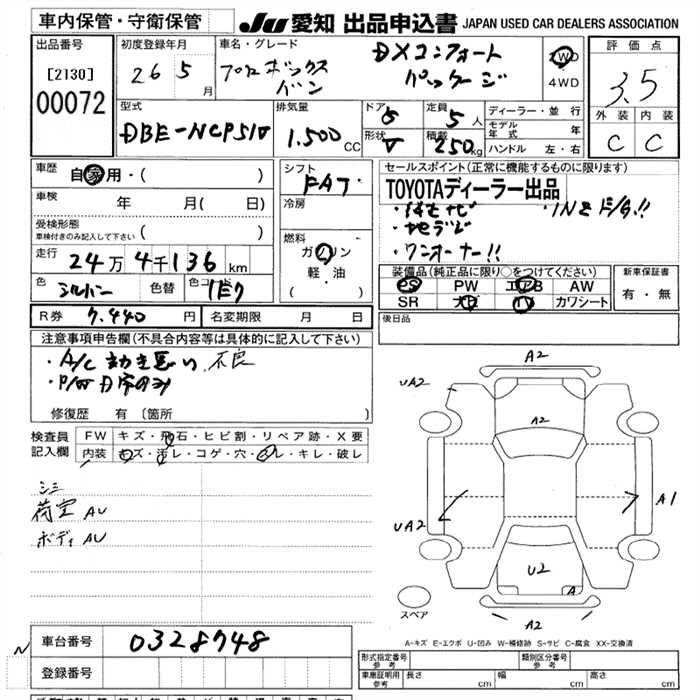 車内保管・守衛保管 JU 愛知 出品申込書 JAPAN USED CAR DEALERS ASSOCIATION
出品番号
[2130]
00072
初度登録年月
26 5 月
車名・グレード
プロボックス
バン
DXコンフォート
パッケージ
2WD
4WD
評価点
3.5
外装 内装
C C
型式
DBE-NCP51V
排気量
1.500 CC
ドア 5
形状 V
定員 5 人
積載 250 kg
ディーラー・並行
モデル年式 年
ハンドル 左・右
車歴 自家用・( )
車検 年 月( 日)
受検形態
車検付きのみ記入して下さい
走行 24万4千136 km
色 シルバー 色替 色コード 1E7
R券 7.440 円 名変期限 月 日
シフト
FAT
冷房
燃料
ガソリン
軽・油
( )
セールスポイント(正常に機能するものに限ります)
TOYOTAディーラー出品
・地デジ
・ワンオーナー!!
装備品(純正品に限り○をつけてください)
PS PW エアB AW
SR ナビ TV カワシート
新車保証書
有・無
後日品
注意事項申告欄(不具合内容等は具体的に記入して下さい)
・A/C 効き悪い 不良
・P/W D席のみ
修復歴 有 〔箇所 〕
検査員
記入欄
FW キズ・飛石・ヒビ割・リペア跡・X要
内装 キズ・汚レ・コゲ・穴・スレ・キレ・破レ
シミ
荷室 AU
ボディ AU
A2
UA2
A2
A1
UA2
U2
A
A2
スペア
A-キズ E-エクボ U-凹み W-補修跡 S-サビ C-腐食 XX-交換済
N
車台番号 0328748
登録番号
形式指定番号
参考
類別区分番号
参考
車庫証明用
参考
長さ cm 幅 cm 高さ cm